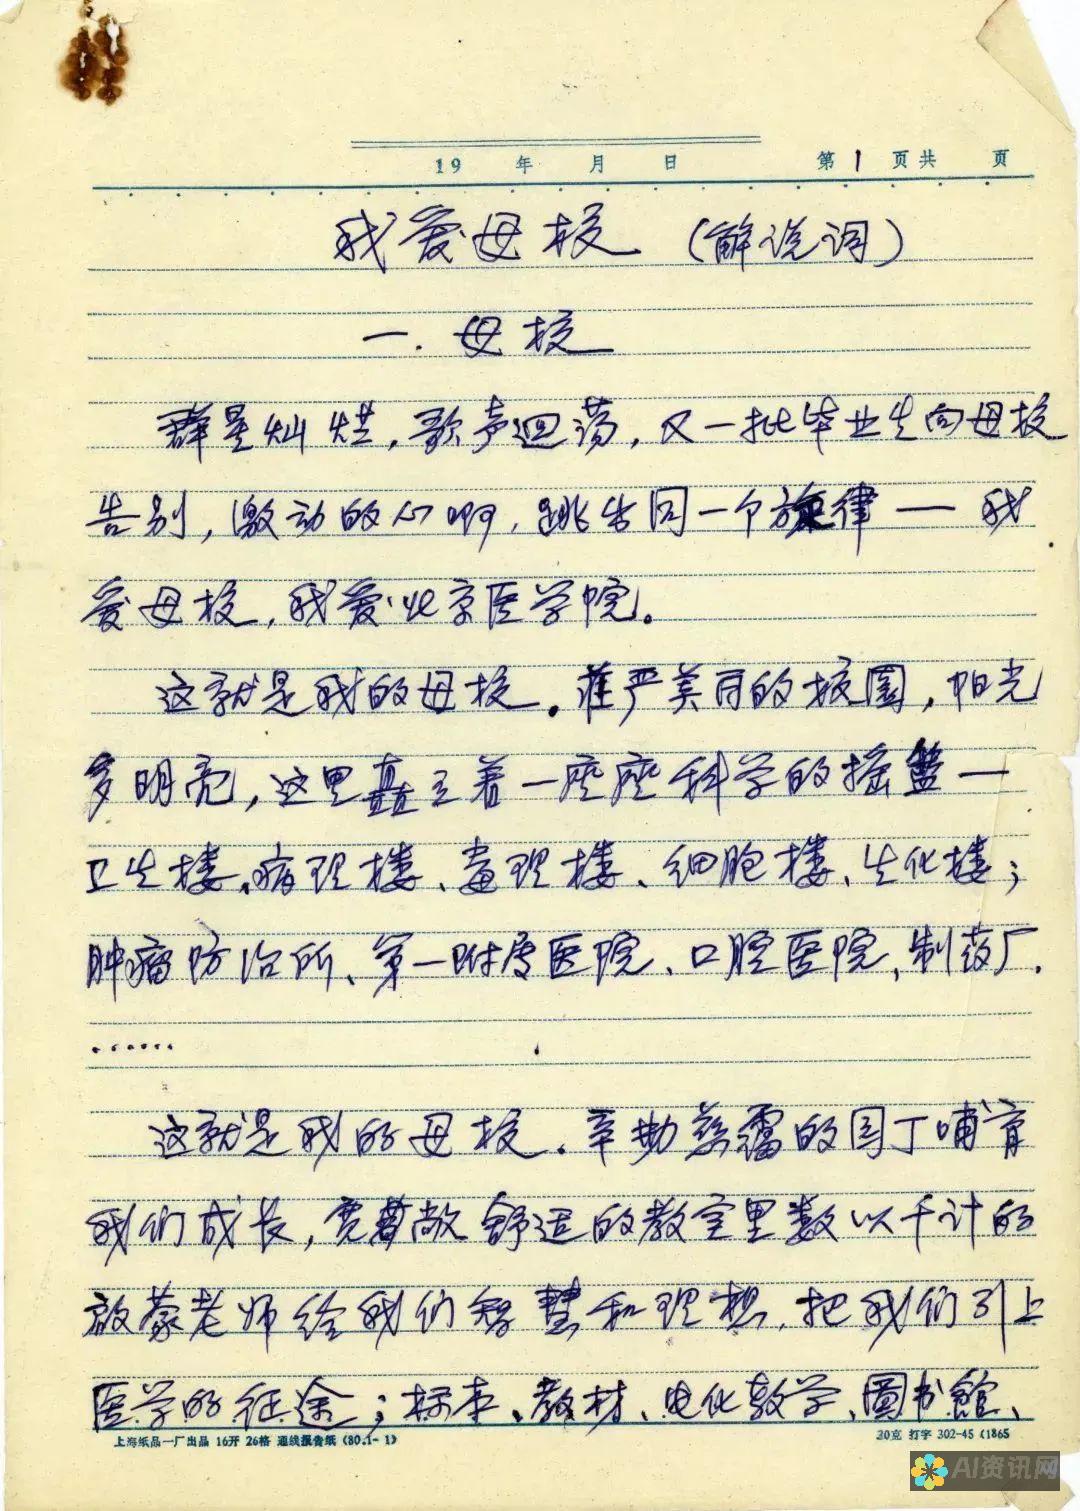 19 年 月 日 第1页共 页
我爱母校（解说词）
一.母校
群星灿烂，歌声迴荡，又一批毕业生向母校
告别，激动的心啊，跳出同一个旋律——我
爱母校，我爱北京医学院。
这就是我的母校。庄严美丽的校园，阳光
多明亮，这里矗立着一座座科学的摇篮——
卫生楼、病理楼、毒理楼、细胞楼、生化楼；
肿瘤防治所、第一附属医院、口腔医院、制药厂、
……
这就是我的母校。辛勤慈霭的园丁哺育
我们成长，宽敞舒适的教室里数以千计的
启蒙老师给我们智慧和理想，把我们引上
医学的征途；标本、教材、电化教学、圖书館、
上海纸品一厂出品 16开 26格 通线报告纸 (80.1-1) 30克 打字 302-45 (1865
AI资讯网